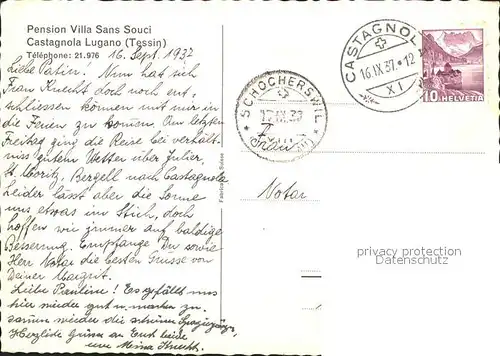 Pension Villa Sans Souci
Castagnola Lugano (Tessin)
Téléphone: 21.976
16. Sept. 1937
Liebe Patin! Nun hat sich
Frau Knecht doch noch ent-
schliessen können mit mir in
die Ferien zu kommen. Am letzten
Freitag ging die Reise bei verhält-
niss. gutem Wetter über Julier,
St. Moritz, Bergell nach Castagnola
Leider lässt aber die Sonne
uns etwas im Stich, doch
hoffen wir immer auf baldige
Besserung. Empfange Du sowie
Herr Notar die besten Grüsse von
Deiner Margrit.
Liebe Pauline! Es gefällt uns
hier wieder gut u. machen zu-
sammen wieder die schönen Spaziergänge,
Herzliche Grüsse an Euch beide
eure Meina Knecht.
CASTAGNOLA
16.IX.37.*12
XI
10 HELVETIA
* SCHOCHERSWIL *
17.IX.37
Notar
privacy protection watermark
DETLEV COLLECTION